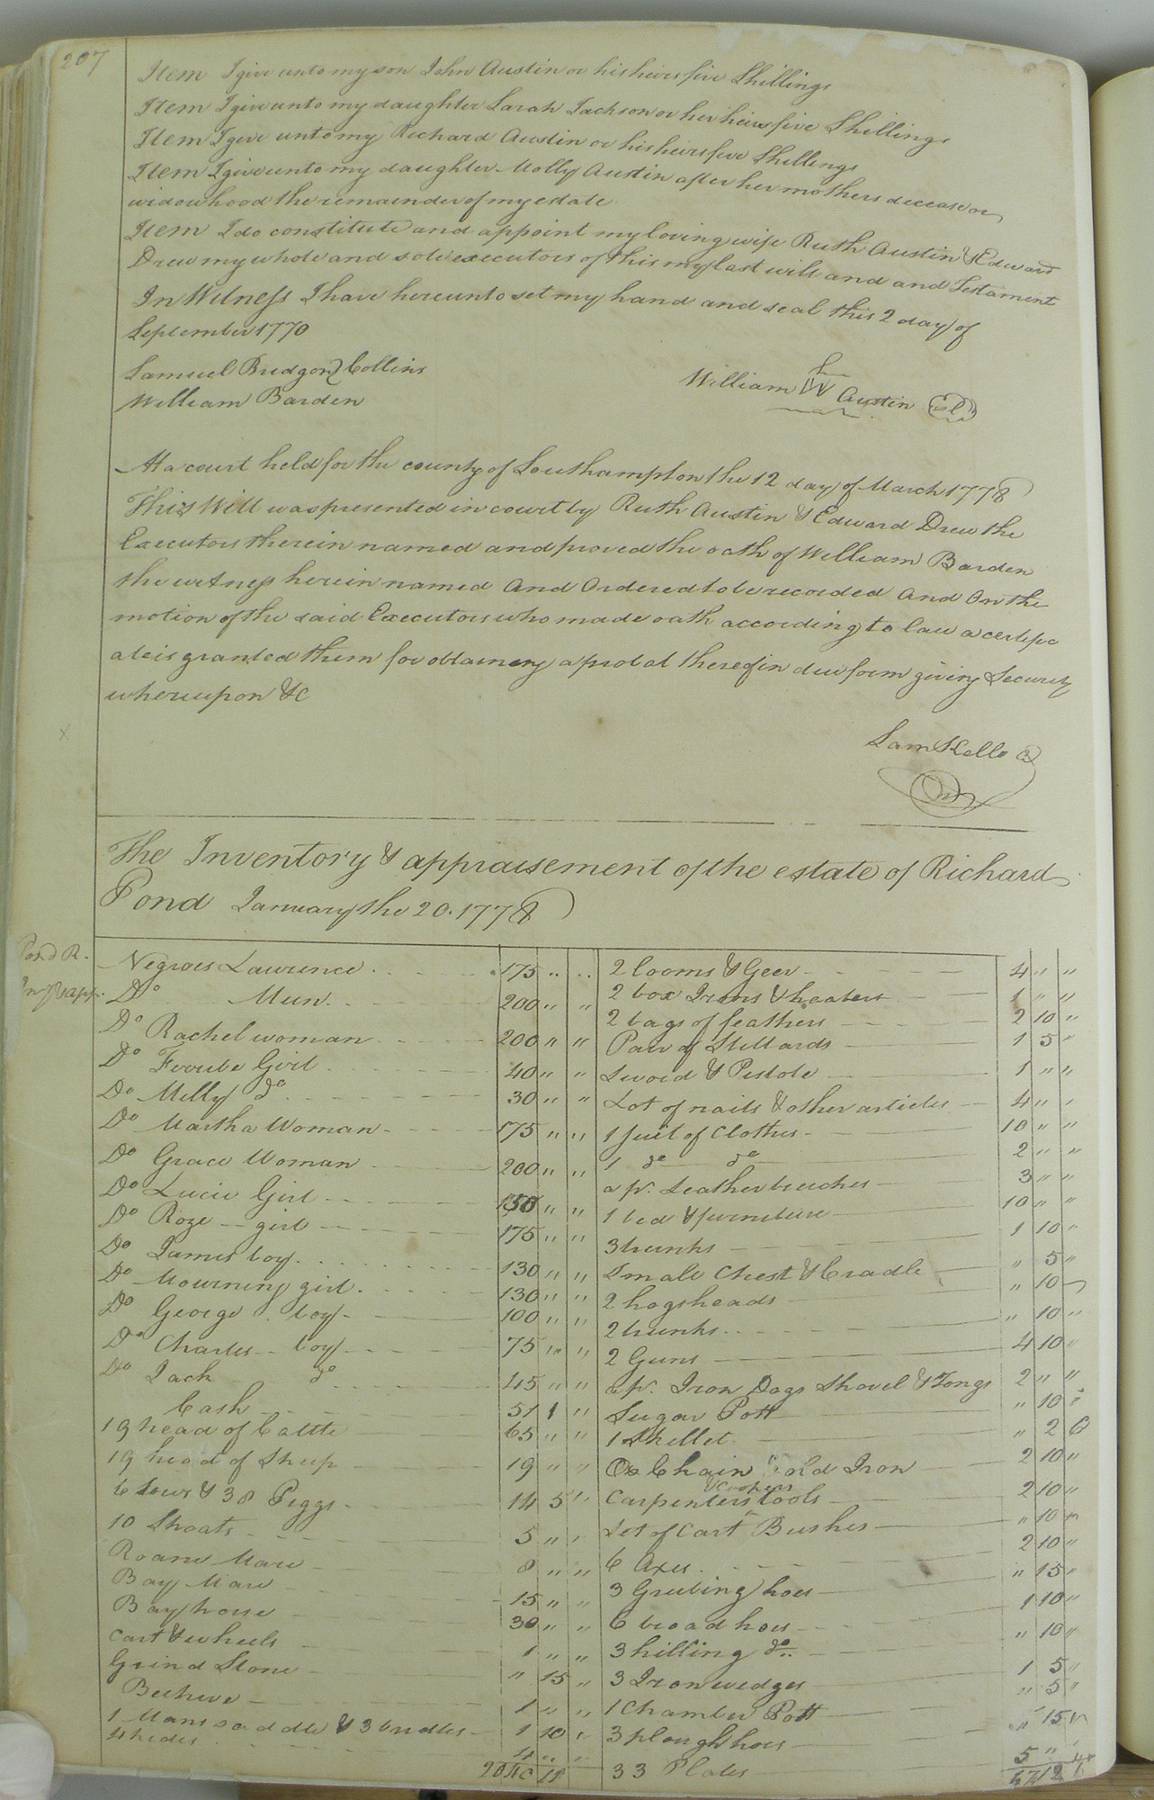 207
Item I give unto my son John Austin or his heirs five Shillings
Item I give unto my daughter Sarah Jackson or her heirs five Shillings
Item I give unto my Richard Austin or his heirs five Shillings
Item I give unto my daughter Molly Austin after her mothers decease or
widowhood the remainder of my estate
Item I do constitute and appoint my loving wife Ruth Austin & Edward
Drew my whole and sole executors of this my last will and and Testament
In Witness I have hereunto set my hand and seal this 2 day of
September 1770
Samuel Collins
William Barden
William W Austin
At a court held for the county of Southampton the 12 day of March 1778
This Will was presented in court by Ruth Austin & Edward Drew the
Executors therein named and proved the oath of William Barden
the witness herein named And Ordered to be recorded And On the
motion of the said Executors who made oath according to law a certific
ate is granted them for obtaining a probat thereof in due form giving Security
whereupon &c
Sam Kello
The Inventory & appraisement of the estate of Richard
Pond January the 20. 1778
Pond R.
Negroes Lawrence 175 " "
Do Mun. 200 " "
Do Rachel woman 200 " "
Do Girl 40 " "
Do Milly do 30 " "
Do Martha Woman 175 " "
Do Grace Woman 200 " "
Do Lucie Girl 150 " "
Do Roze girl 175 " "
Do James boy 130 " "
Do Mourning girl 130 " "
Do George boy 100 " "
Do Charles boy 75 " "
Do Jack do 45 " "
Cash 51 1 "
19 head of Cattle 65 " "
19 head of Sheep 19 " "
6 Sows & 38 Piggs 14 5 "
10 Shoats 5 " "
Roane Mare 8 " "
Bay Mare 15 " "
Bay horse 30 " "
Cart & wheels 1 " "
Grind Stone " 15 "
Beehive 1 " "
1 Mans saddle & 3 bridles 1 10 "
4 hides
2 looms & Geer 4 " "
2 box Irons & heaters 1 " "
2 bags of feathers 2 10 "
Pair of Stillards 1 5 "
Sword & Pistole 1 " "
Lot of nails & other articles 4 " "
1 suit of Clothes 10 " "
1 do do 2 " "
a pr. Leather breeches 3 " "
1 bed & furniture 10 " "
3 trunks 1 10 "
Small Chest & Cradle " 5 "
2 hogsheads " 10 "
2 trunks " 10 "
2 Guns 4 10 "
pr. Iron Dogs Shovel & Tongs 2 " "
Sugar Pott " 10 "
1 Skillet " 2 6
Ox Chain old Iron 2 10 "
Carpenters & Coopers tools 2 10 "
Set of Cart Bushes " 10 "
6 Axes 2 10 "
3 Grubing hoes " 15 "
6 broad hoes 1 10 "
3 hilling do " 10 "
3 Iron wedges 1 5 "
1 Chamber Pott " 5 "
3 plough hoes " 15 "
33 Plates 5 " "